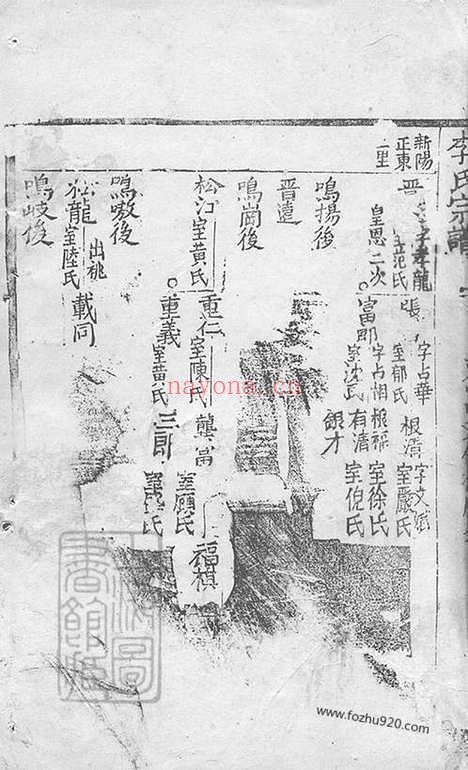 李氏宗譜
新陽
正東
一里
晋
字孝龍
室范氏
皇恩二次
張
字占華
室郁氏
根清
字文斌
室嚴氏
富郎
字占相
室沈氏
根福
室徐氏
有清
室倪氏
銀才
鳴揚後
晋選
鳴崗後
松江室黄氏
重仁
室陳氏
龔富
室顧氏
福棋
重義
室黄氏
三郎
鳴嗷後
松龍室陸氏
出桃
載同
鳴岐後
nayona.cn
上海圖書館藏
www.fozhu920.com